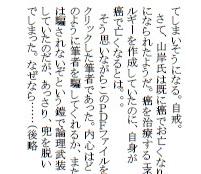 てしまいそうになる。自戒。
さて、山岸氏は既に癌でお亡くなり
になられたようだ。癌を治療する「エネ
ルギー」を作成していたのに、自身が
癌で亡くなるとは。。。
そう思いながらこのPDFファイルを
クリックした筆者であった。内心はど
のように筆者を騙してくれるか、また
は騙されないぞという鎧で論理武装
していたのだが、あっさり、兜を脱い
でしまった。なぜなら……（後略